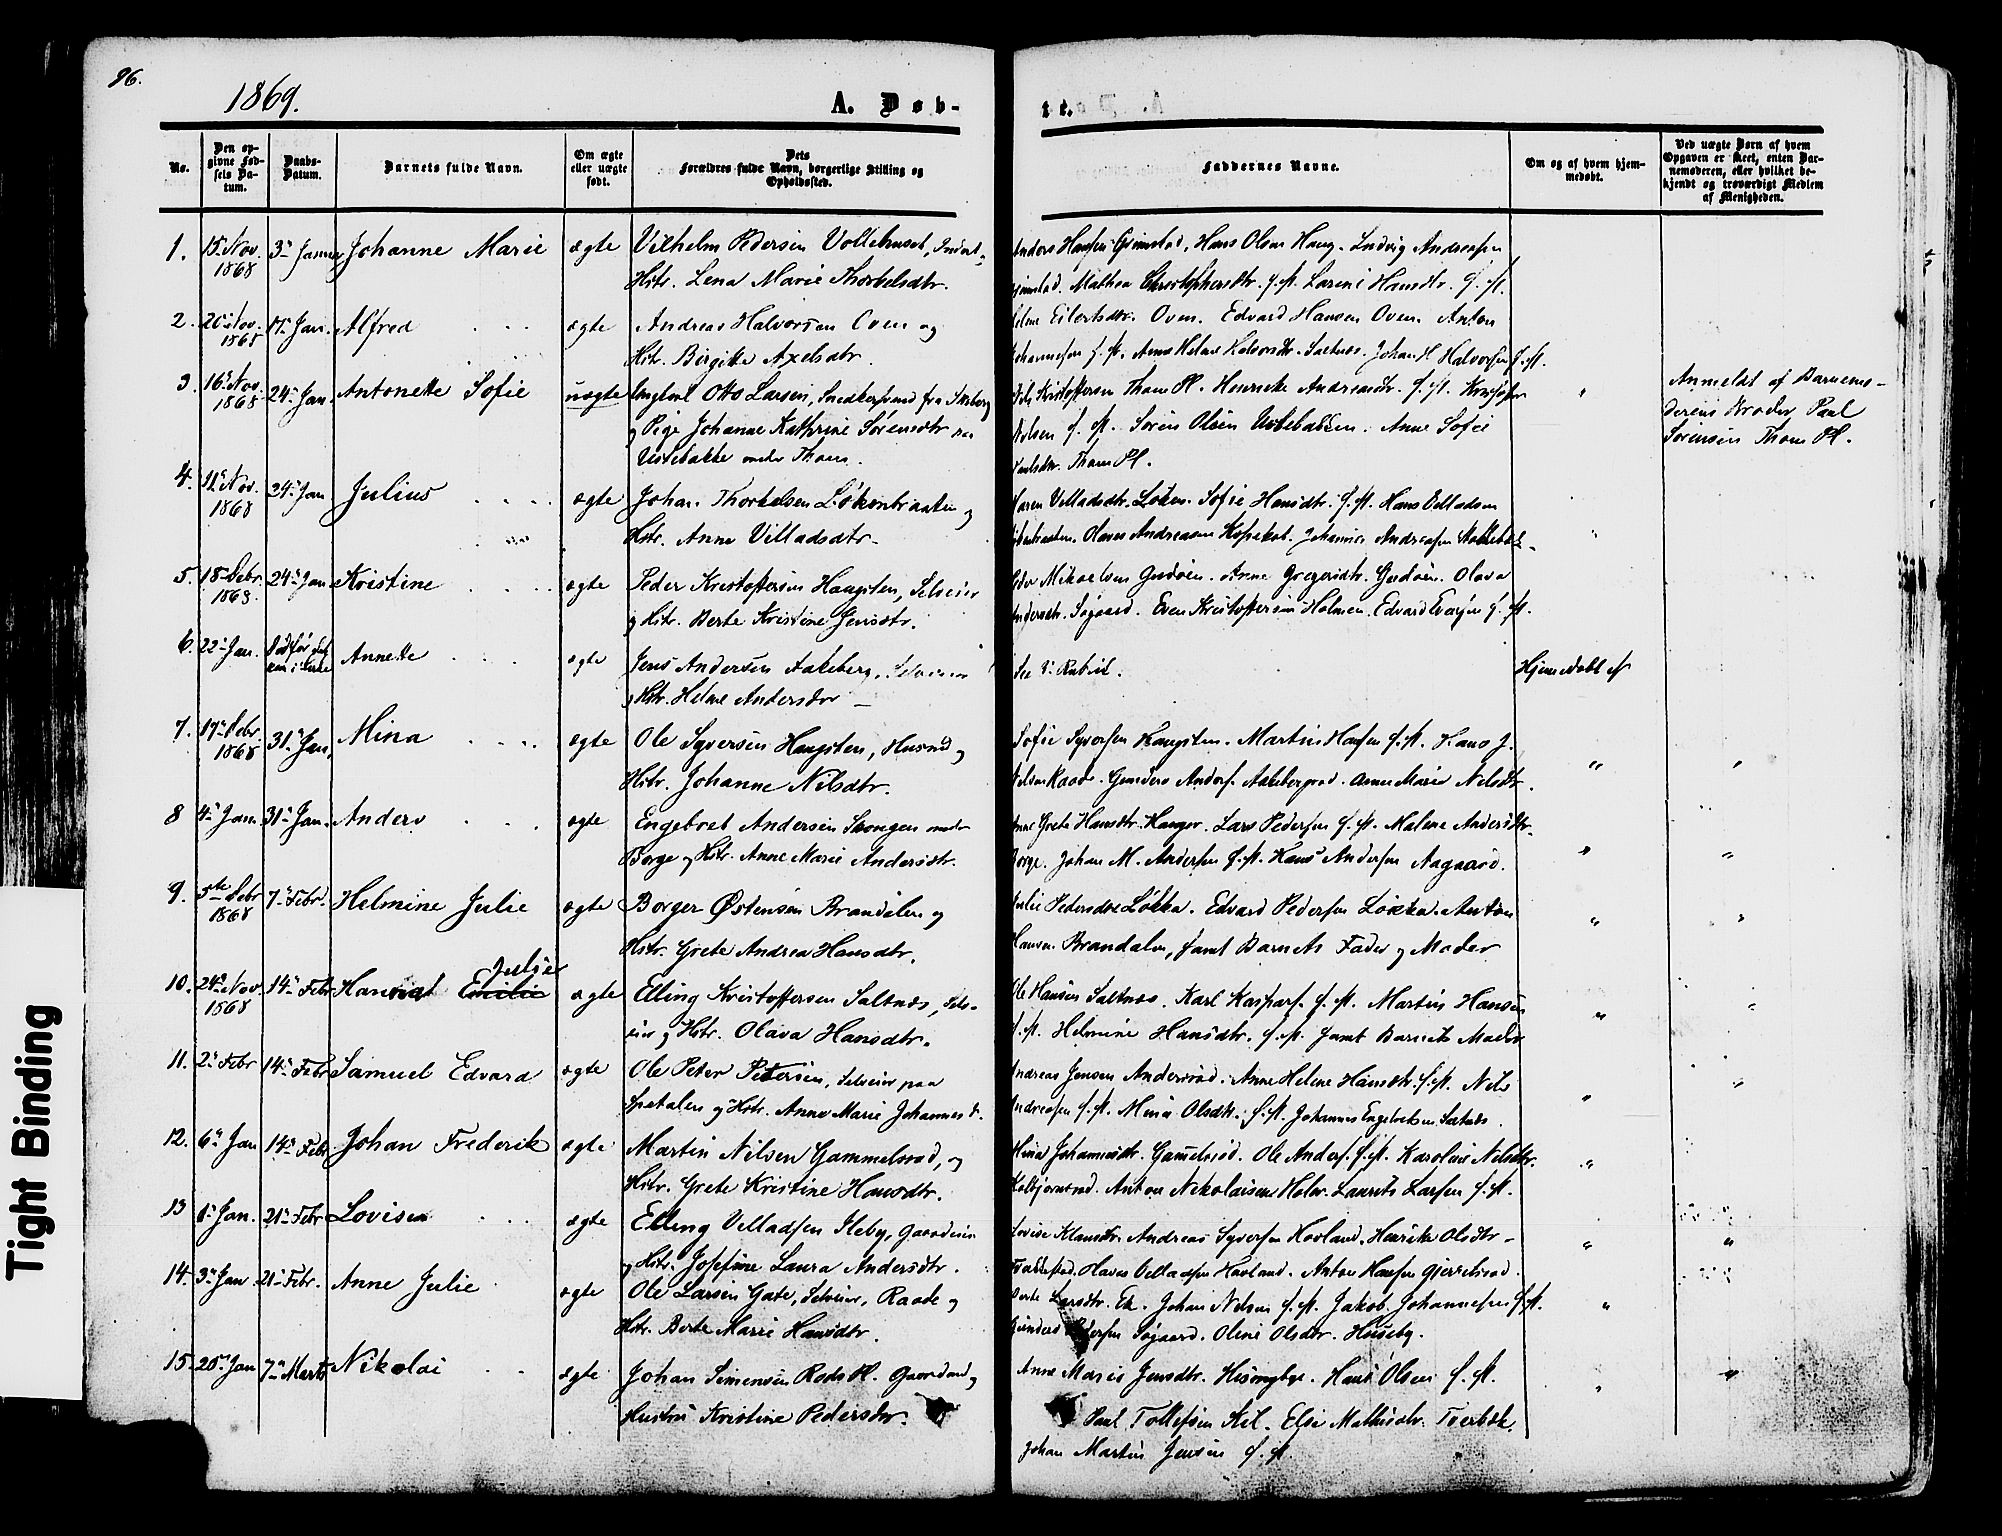 96.
1869.
A. Døb-
te.
No.
Den op-
givne Fød-
sels Da-
tum.
Daabs-
Datum.
Barnets fulde Navn.
Om ægte
eller uægte
født.
Dets
Forældres fulde Navn, borgerlige Stilling og
Opholdssted.
Faddernes Navne.
Om og af hvem hjem-
medøbt.
Ved uægte Børn af hvem
Opgaven er skeet, enten Bar-
nemoderen, eller hvilket be-
kjendt og troværdigt Medlem
af Menigheden.
1. 15 Nov. 1868 3 Januar Johanne Marie ægte Vilhelm Pedersen Vollehuset,
Hstr. Lena Marie Thorkelsdtr.
Anders Hansen Grimstad, Hans Olsen Haug. Ludvig Andreasen
Grimstad. Mathea Christophersdtr. f. st. Larine Hansdtr. f. st.
2. 26 Nov. 1868 17 Jan. Alfred ægte Andreas Halvorsen Oven og
Hstr. Birgitte Axelsdtr.
Helene Eilertsdtr. Oven. Edvard Hansen Oven. Anton
Johannesen f. st. Anne Helene Halvorsdtr. Saltnes. Johan H. Halvorsen f. st.
3. 16 Nov. 1868 24 Jan. Antonette Sofie uægte Ungkarl Otto Larsen, Snedkersvend fra
og Pige Johanne Kathrine Sørensdtr. paa
Ustebakke under Thom.
Kristoffersen Thom Pl. Henrike Andreasdtr. f. st. Kristoffer
f. st. Søren Olsen Ustebakken. Anne Sofie
Paulsdtr. Thom Pl.
Anmeldt af Barnemo-
derens Broder Paul
Sørensen Thom Pl.
4. 11 Nov. 1868 24 Jan Julius ægte Johan Thorkelsen Løkenbraaten og
Hstr. Anne Villadsdtr.
Maren Villadsdtr. Løken. Sofie Hansdtr. f. st. Hans Villadsen
Løkenbraaten. Olaves Andreasen Kopskot. Johannes Andreasen
5. 18 Debr. 1868. 24 Jan Kristine ægte Peder Kristoffersen Haugsten, Selveier
og Hstr. Berte Kristine Jensdtr.
Peder Mikaelsen Gudøen. Anne Gregersdtr. Gudøen. Olava
Andersdtr. Søgaard. Even Kristoffersen Holmen. Edvard f. st.
6. 22 Jan. Annette ægte Jens Andersen Aakeberg, Selveier
og Hstr. Helene Andersdtr
Se 8 Rubrik.
Hjemmedøbt af
7. 17 Debr. 1868 31 Jan. Mina ægte Ole Syversen Haugsten, Husmd. og
Hstr. Johanne Nilsdtr.
Sofie Syversen Haugsten. Martin Hansen f. st. Hans J.
Nilsen Raade. Gunders Anders. Aakebergrød. Anne Marie Nilsdtr.
8 4 Jan. 31 Jan. Anders ægte Engebret Andersen Skougen under
Borge og Hstr. Anne Marie Andersdtr.
Anne Grete Hansdtr. Hauger. Lars Pedersen f. st. Malene Andersdtr.
Borge. Johan M. Andersen f. st. Hans Andersen Aagaard.
9. 5te Debr 1868 7 Febr. Helmine Julie ægte Borger Østensen Brandalen og
Hstr. Grete Andrea Hansdtr.
Julie Pedersdtr Løkka. Edvard Pedersen Løkka. Anton
Hansen Brandalen, samt Barnets Fader og Moder
10. 24 Nov. 1868 14 Febr Julie ægte Elling Kristoffersen Saltnes, Selv-
eier og Hstr. Olava Hansdtr.
Ole Hansen Saltnes. Karl Kaspars. f. st. Martin Hansen
f. st. Helmine Hansdtr. f. st. samt Barnets Moder
11. 2 Febr 14 Febr Samuel Edvard ægte Ole Peter Petersen, Selveier paa
Spetalen og Hstr. Anne Marie Johannesd.
Andreas Jensen Andersrød. Anne Helene Hansdtr. f. st. Nils
Andreasen f. st. Mina Olsdtr. f. st. Johannes Engebretsen Saltnes.
12. 6 Jan 14 Febr Johan Frederik ægte Martin Nilsen Gammelsrød, og
Hstr. Grete Kristine Hansdtr.
Mina Johannesdtr. Gamelsrød. Ole Anders. f. st. Karoline Nilsdtr.
Kolbjørnsrød. Anton Nikolaisen Holm. Laurits Larsen f. st.
13 1 Jan. 21 Febr Lovisa ægte Elling Villadsen Ileby, Gaardeier
og Hstr. Josefine Laura Andersdtr.
Lovise Klausdtr. Andreas Syversen Hovland. Henrike Olsdtr.
Hans Villadsen Hovland. Anton Hansen
14. 3 Jan 21 Febr. Anne Julie ægte Ole Larsen Gate, Selveier, Raade og
Hstr. Berte Marie Hansdtr.
Berte Larsdtr. Ek. Johan Nilsen f. st. Jakob Johannesen f. st.
Gunders Pedersen Søgaard. Oline Olsdtr. Huseby.
15. 25 Jan 7 Marts Nikolai ægte Johan Simensen Røds Pl. og
Hustru Kristine Pedersdtr.
Anne Marie Jensdtr. Hans Olsen f. st.
Paul Tollefsen Kil. Else Mathisdtr. Tverbæk.
Johan Martin Jensen f. st.
Tight Binding